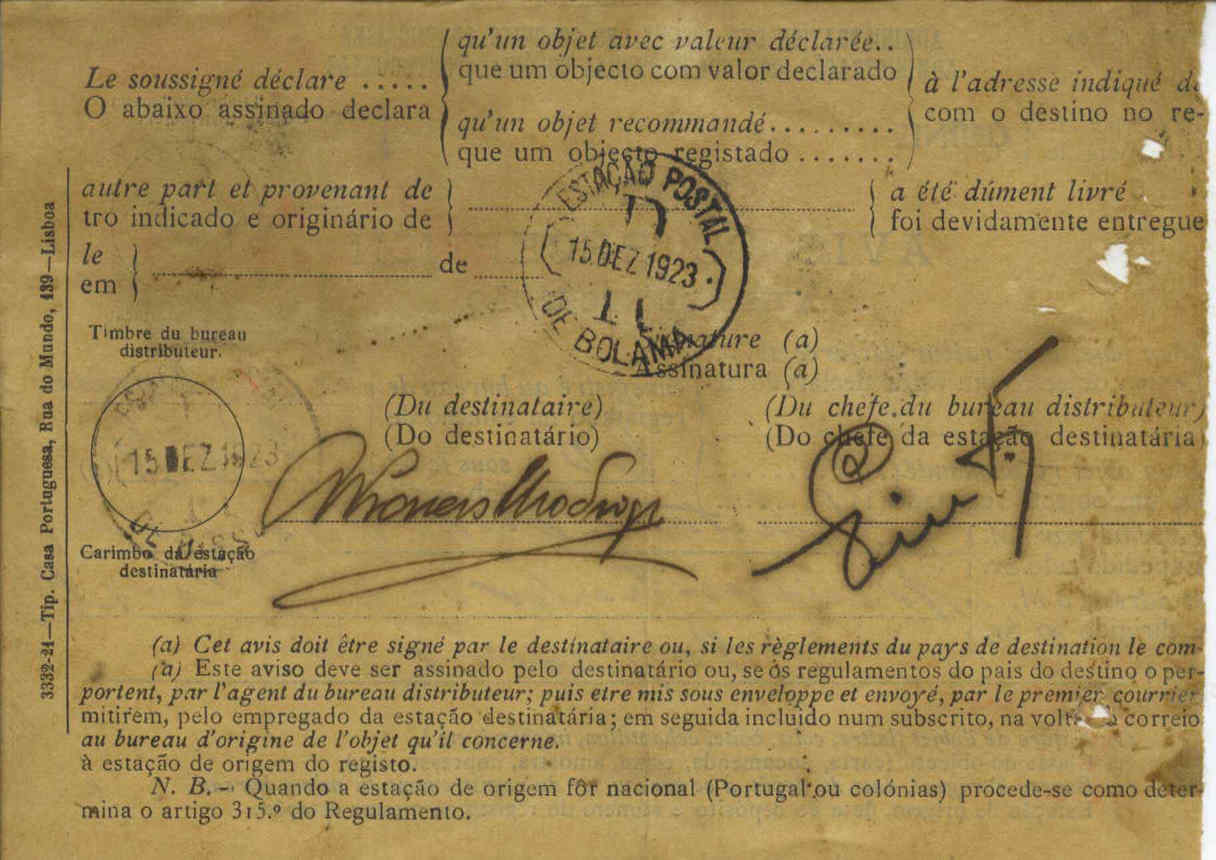 qu'un objet avec valeur déclarée..
Le soussigné déclare ..... que um objecto com valor declarado à l'adresse indiqué
O abaixo assinado declara qu'un objet recommandé......... com o destino no re-
que um objecto registado .......
autre part et provenant de a été dúment livré
tro indicado e originário de foi devidamente entregue
le
em de
ESTAÇÃO POSTAL
15 DEZ 1923
DE BOLAMA
Timbre du bureau
distributeur.
Signature (a)
Assinatura (a)
(Du destinataire) (Du chefe du bureau distributeur)
(Do destinatário) (Do chefe da estação destinatária)
15 DEZ 1923
Carimbo da estação
destinatária
(a) Cet avis doit être signé par le destinataire ou, si les règlements du pays de destination le com-
(a) Este aviso deve ser assinado pelo destinatário ou, se os regulamentos do pais do destino o per-
portent, par l'agent du bureau distributeur; puis etre mis sous enveloppe et envoyé, par le premier courrier
mitirem, pelo empregado da estação destinatária; em seguida incluido num subscrito, na volta correio
au bureau d'origine de l'objet qu'il concerne.
à estação de origem do registo.
N. B.— Quando a estação de origem fôr nacional (Portugal ou colónias) procede-se como deter-
mina o artigo 315.º do Regulamento.
3332-21—Tip. Casa Portuguesa, Rua do Mundo, 139—Lisboa